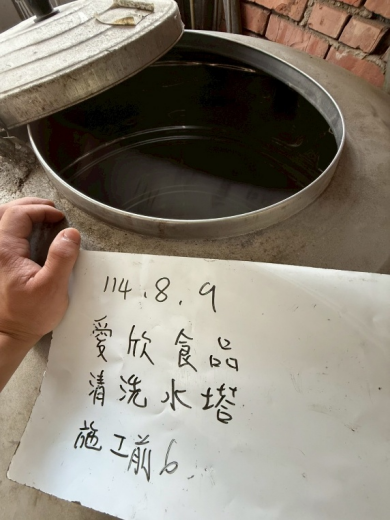 114.8.9
愛欣食品
清洗水塔
施工前6